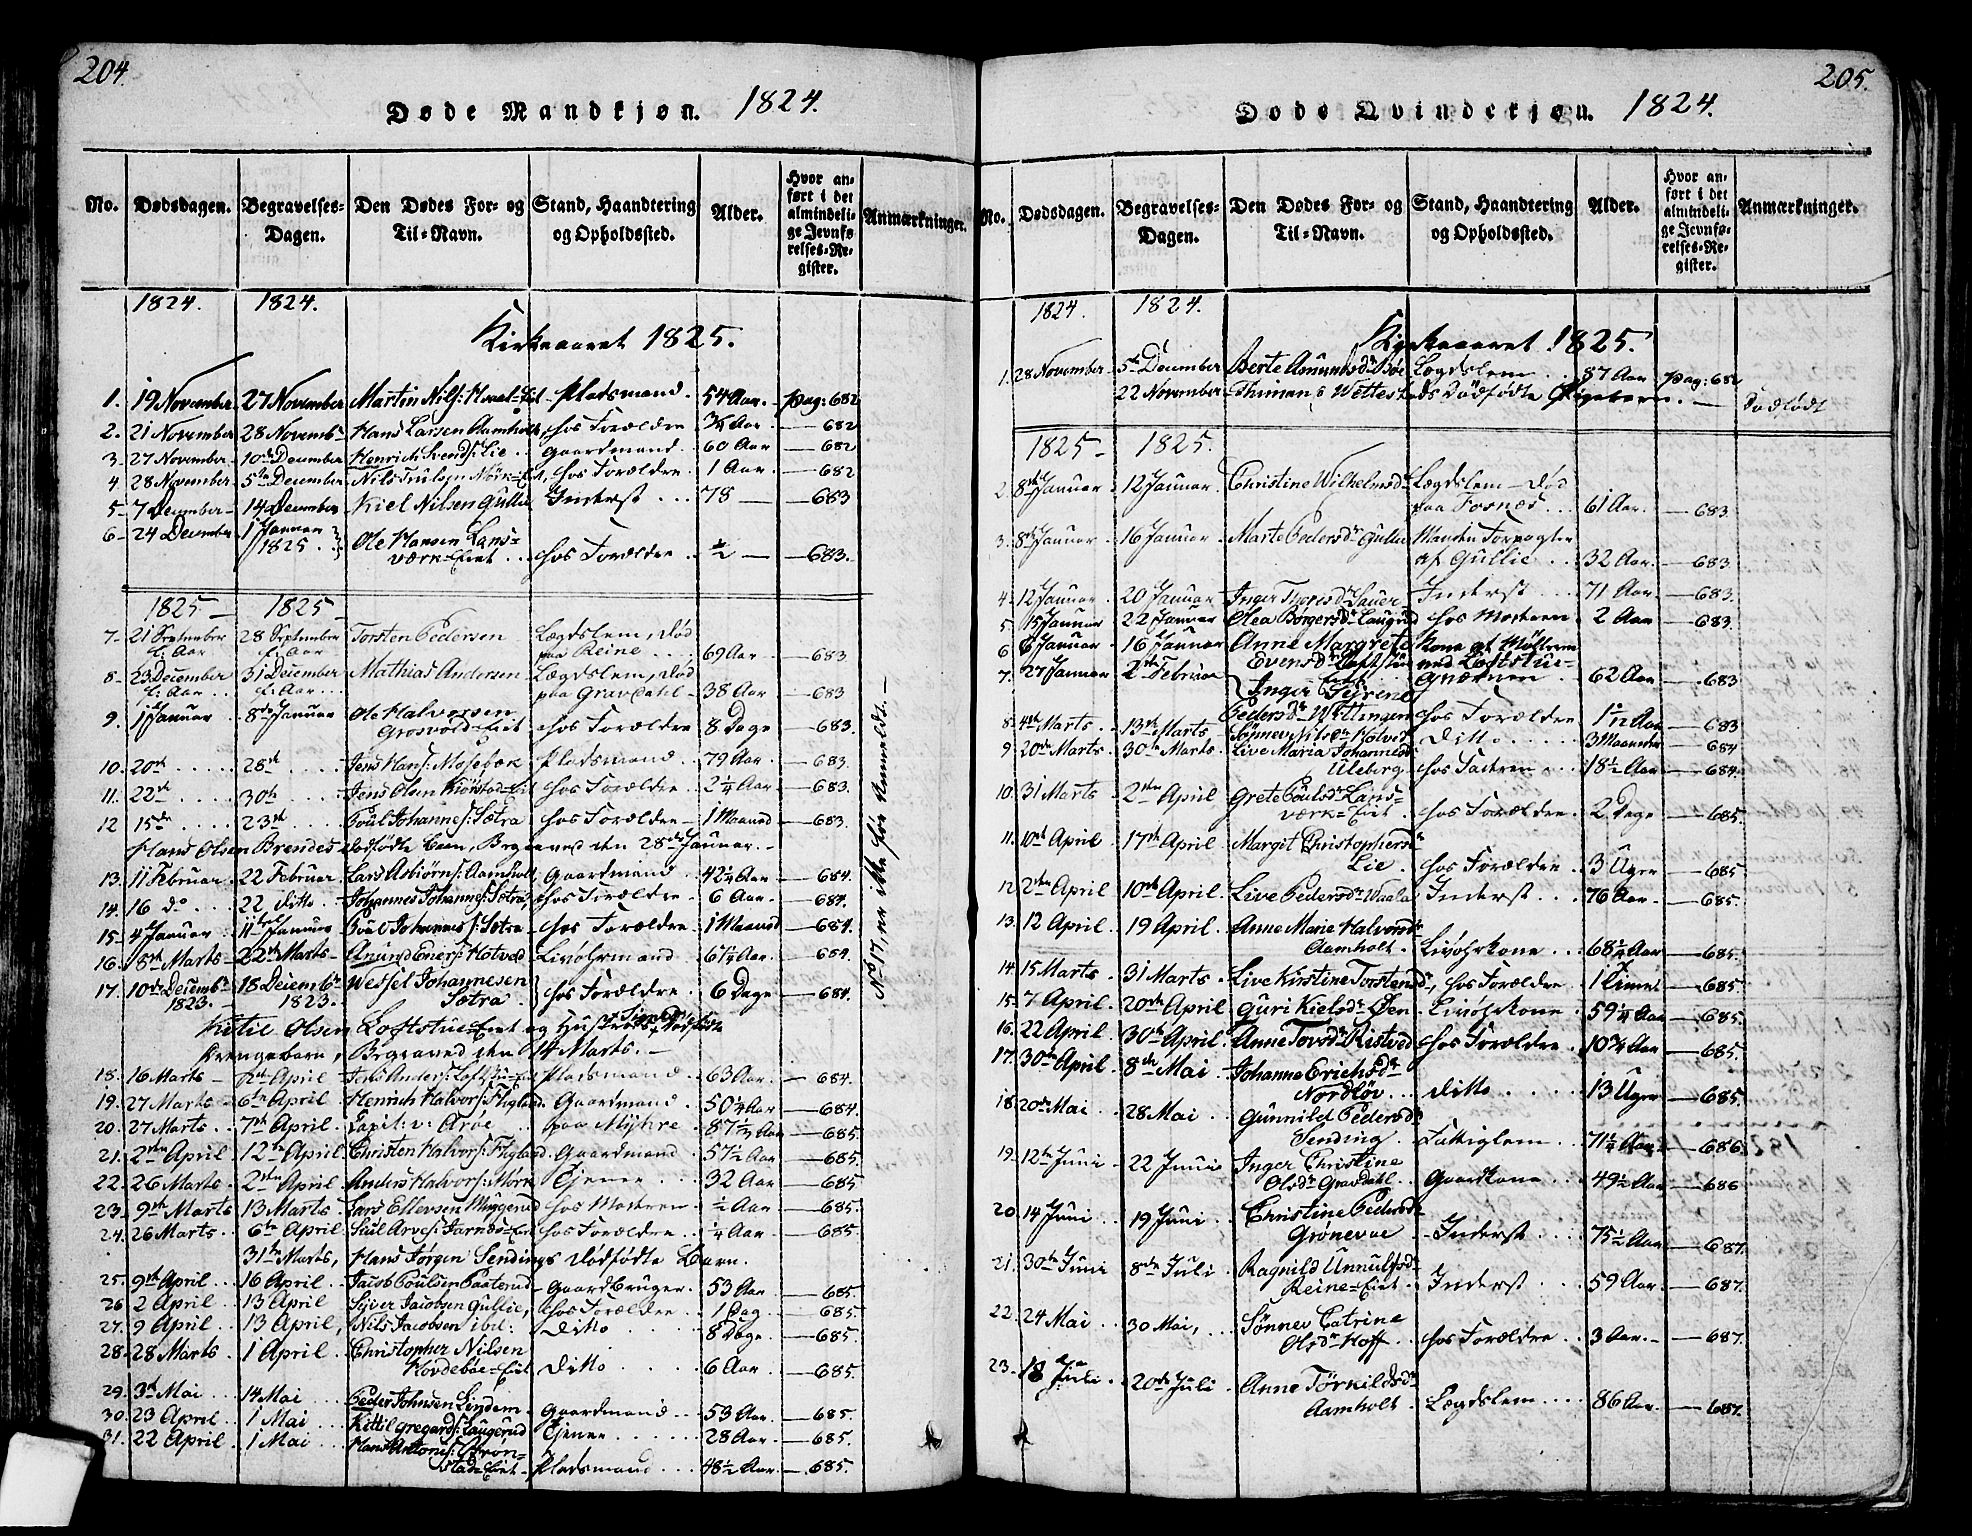 204.
Døde Mandkjøn. 1824.
No. Dødsdagen. Begravelses-Dagen. Den Dødes For- og Til-Navn. Stand, Haandtering og Opholdssted. Alder. Hvor anført i det almindelige Jevnførelses-Register. Anmærkninger.
1824. 1824.
Kirkeaaret 1825.
1. 19 November 27 November Martin Nils: Plads mand. 54 Aar. pag: 682
2. 21 November 28 Novembr Hans Larsen Aamholt hos Forældre 3/4 Aar. 682
3. 27 November 10de December Henrich Svends: Lie gaardmand 60 Aar 682
4 28 November 5te December Nils Truls:n Mörk=Eiet, hos Forældre 1 Aar. 682
5. 7 December 14 December Kiel Nilsen Gullie Inderst 78 683
6. 24 December 1 Januar 1825. Ole Hansen Lans=
værk=Eiet hos Forældre 1/2 683.
1825 1825
7. 21 September f: Aar 28 September f: Aar Torsten Pedersen Lægdslem, död
paa Reine 69 Aar 683
8. 23 December f: Aar 31 December f: Aar Mathias Andersen Lægdslem, död
paa Gravdahl 38 Aar 683
9. 1 Januar 8de Januar Ole Halvorsen
Grosvold=Eiet hos Forældre 8 Dage 683.
10. 20de 28de Jens Hans: Mosebæk Pladsmand 79 Aar 683.
11. 22de 30te Jens Olsen hos Forældre 2 1/4 Aar 683.
12 15de 23de Poul Johannes: Sætra hos Forældre 1 Maaned 683.
Hans Olsen Brendes dödfödte Barn, Begravet den 28de Januar.
13. 11 Februar 22 Februar Lars Asbiörns: Aamholt Gaardmand 42 1/4 Aar 684.
14. 16 do 22 ditto Johannes Johannes: Sætra, hos Forældre 6 Aar. 684.
15. 4 Januar 11 Januar Poul Johannes: Sætra hos Forældre 1 Maaned 684.
16. 8de Marts 22de Marts Amund Eners: Hotved Livöhrmand 67 1/4 Aar 684.
17. 10de Decembr 1823. 18 Decembr 1823. Wessel Johannesen
Sætra hos Forældre 6 Dage 684.
No 17, er ikke för Anmeldt.
Kitil Olsen Loftstue=Eiet og Hustroes dödfödte
Drengebarn, Begraved den 14 Marts.
18. 16 Marts 2de April Jens Anders: Loftstu=Eiet Pladsmand 63 Aar. 684.
19. 27 Marts 6te April Henrich Halvors: Gaardmand 50 1/4 Aar 684.
20. 27 Marts 7de April Capit: v: Aröe paa Myhre 87 Aar 685.
21. 2den April 12te April Christen Halvors: Gaardmand 57 1/2 Aar 685.
22. 26 Marts 2den April Anders Halvors: Mörk Tjener 32 Aar 685
23. 9de Marts 13 Marts Lars Ellevsen Muggerud hos Moderen 1/2 Aar 685.
24. 26 Marts 6te April hos Forældre 1/4 Aar 685
31te Marts, Hans Jörgen Sendings dödfödte Barn.
25. 9de April 16 April Jacob Poulsen Gaardbruger 53 Aar 685.
26 2 April 13 April Syver Jacobsen Gullie, hos Forældre 1 Dag 685.
27. 9 April 13 April, Nils Jacobsen ibid: Ditto 8 Dage 685.
28. 28 Marts 1 April Christopher Nilsen
Hovdebøe=Eiet Ditto 6 Aar 685.
29. 3de Mai 14 Mai Peder Johnsen Lindem Gaardmand 53 Aar 685.
30. 23 April 1 Mai Kittil Gregars: Laugerud Tjener 28 Aar 685.
31. 22 April 1 Mai Hans Antons: Bron=
stad=Eiet Pladsmand 48 1/2 Aar. 685.
205.
Døde Qvindekjøn. 1824.
No. Dødsdagen. Begravelses-Dagen. Den Dødes For- og Til-Navn. Stand, Haandtering og Opholdssted. Alder. Hvor anført i det almindelige Jevnførelses-Register. Anmærkninger.
1824. 1824.
Kirkeaaret 1825.
1. 28 November 5te December Berte Amundsdr Böe Lægdslem 87 Aar pag: 682
22 November Thiman Wettesteds Dödfödte Pigebarn. Dødfödt
1825 1825.
2. 8de Januar 12 Januar Christine Wilhelmsdr Lægdslem död
paa Fosnæs 61 Aar. 683.
3. 8de Januar 16 Januar Marte Pedersdr Gullie Manden Forpagter
af Gullie 32 Aar. 683.
4. 12 Januar 20 Januar Inger Sauer Inderst 71 Aar 683.
5 15 Januar 22 Januar Olea Borgersdr Laugrud hos Moderen 2 Aar 683.
6 6 Januar 16 Januar Anne Margrete
Evensdr Loftstue Kone af Mölleren
ved Loftstue=
Qværnen 62 Aar 683
7. 27 Januar 2den Februar Inger Serene
Pedersdr Wettingen hos Forældre 1 1/12 Aar 683
8. 4de Marts 13de Marts Sönneve Nilsdr Hotved Ditto 3 Maaneder 684
9 20de Marts 30te Marts. Live Maria Johannesdr
Uleberg hos Faderen 18 1/2 Aar 684.
10. 31 Marts 2den April Grete Poulsdr Lans=
værk=Eiet hos Forældre 2 Dage 685.
11. 10de April 17de April Margit Christophersdr
Lie hos Forældre 3 Uger 685
12 2den April 10de April Live Pedersdr Waala Inderst 76 Aar 685.
13. 12 April 19 April. Anne Marie Halvorsdr
Aamholt Livöhrkone 68 1/2 Aar 685.
14. 15 Marts 31 Marts Live Kirstine Torstensdr, hos Forældre 1 Time 685.
15. 7 April 20de April Guri Kielsdr Øen Livöhrkone 59 1/4 Aar 685.
16. 22 April 30te April. Anne Tovsdr Ristved hos Forældre 10 3/4 Aar 685.
17. 30te April 8de Mai Johanne Erichsdr
Nordlöv Ditto 13 Uger 685.
18. 20de Mai 28 Mai Gunnild Pedersdr
Sending Fattiglem 71 1/2 Aar 686.
19. 12te Juni 22 Juni Inger Christine
Olsdr Gravdahl Gaardkone 49 1/2 Aar 686
20. 14 Juni 19 Juni Christine Pedersdr
Grönevae Inderst 75 1/2 Aar 687.
21. 30te Juni 8de Juli Ragnild Unnulfsdr
Reine=Eiet Inderst 59 Aar 687.
22. 24 Mai 30 Mai, Sönnev Catrine
Olsdr Hoff hos Forældre 3 Aar. 687.
23. 18 Juli 20de Juli Anne Törkildsdr
Aamholt Lægdslem 86 Aar 687.